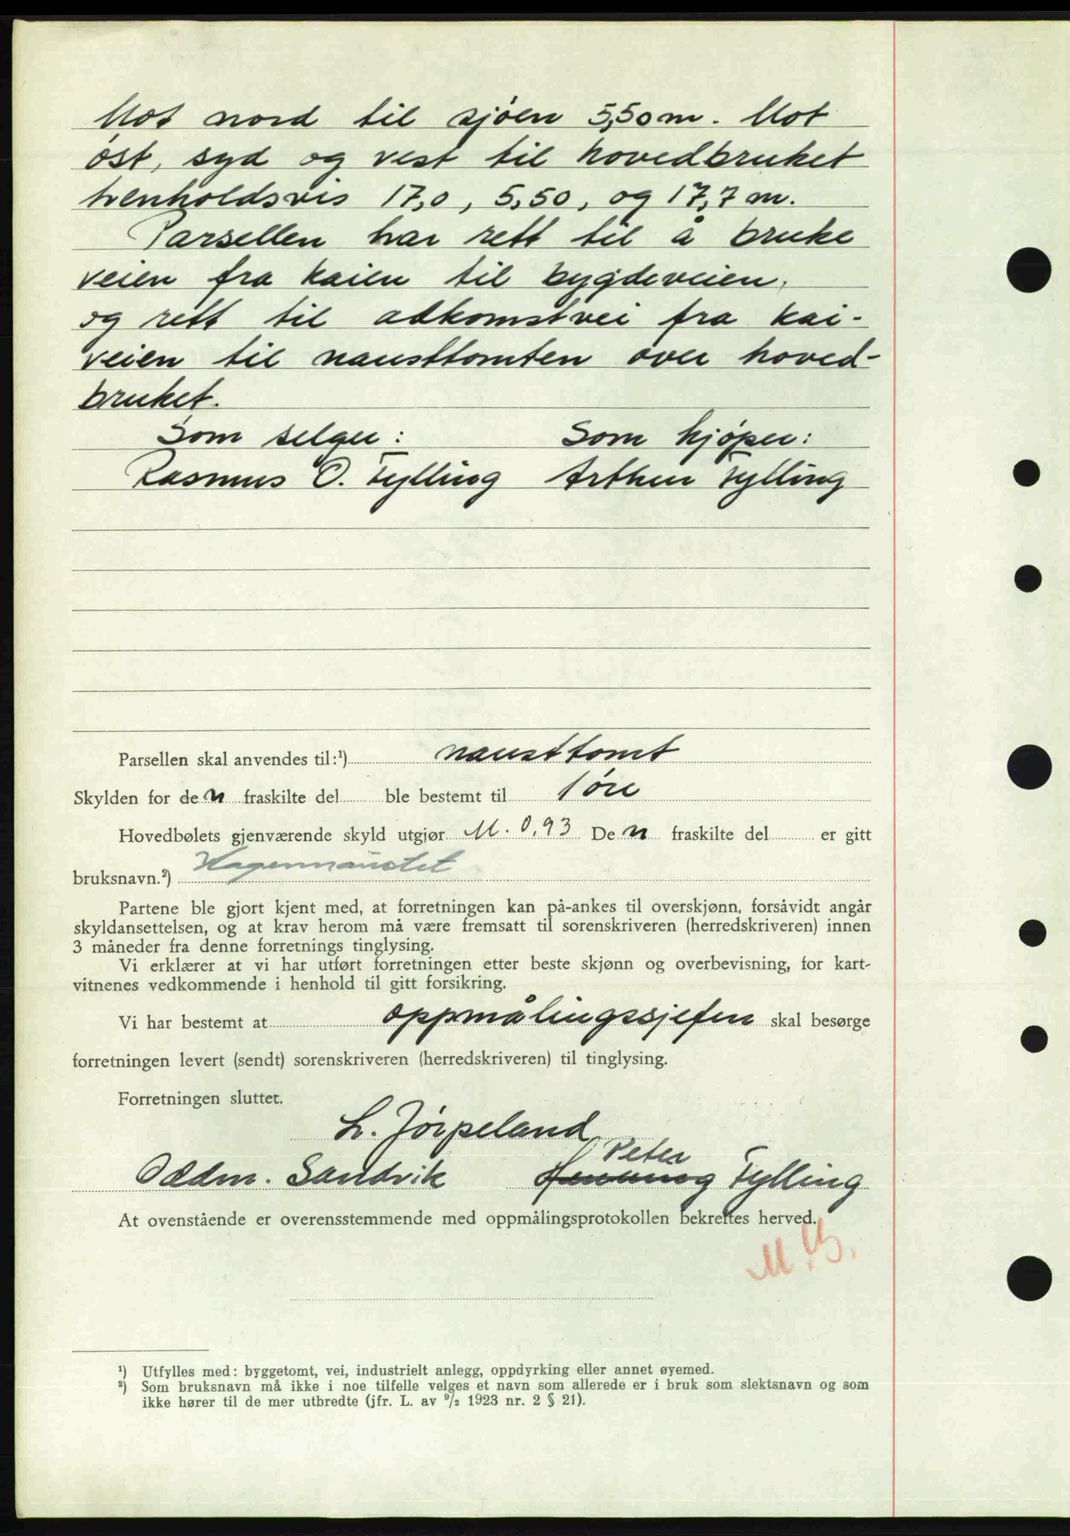 Mot nord til sjøen 5,50 m. Mot
øst, syd og vest til hovedbruket
henholdsvis 17,0, 5,50, og 17,7 m.
Parsellen har rett til å bruke
veien fra kaien til bygdeveien,
og rett til adkomstvei fra kai-
veien til nausttomten over hoved-
bruket.
Som selger: Som kjøper:
Rasmus O. Fylling Arthur Fylling
Parsellen skal anvendes til:¹) nausttomt
Skylden for den fraskilte del ble bestemt til 1 øre
Hovedbølets gjenværende skyld utgjør M. 0,93 Den fraskilte del er gitt
bruksnavn.²) Hagennaustet
Partene ble gjort kjent med, at forretningen kan på-ankes til overskjønn, forsåvidt angår
skyldansettelsen, og at krav herom må være fremsatt til sorenskriveren (herredskriveren) innen
3 måneder fra denne forretnings tinglysing.
Vi erklærer at vi har utført forretningen etter beste skjønn og overbevisning, for kart-
vitnenes vedkommende i henhold til gitt forsikring.
Vi har bestemt at oppmålingssjefen skal besørge
forretningen levert (sendt) sorenskriveren (herredskriveren) til tinglysing.
Forretningen sluttet.
L. Jørpeland
Peter
Oddm. Sandvik Fylling
At ovenstående er overensstemmende med oppmålingsprotokollen bekreftes herved.
M.B.
¹) Utfylles med: byggetomt, vei, industrielt anlegg, oppdyrking eller annet øyemed.
²) Som bruksnavn må ikke i noe tilfelle velges et navn som allerede er i bruk som slektsnavn og som
ikke hører til de mer utbredte (jfr. L. av 9/2 1923 nr. 2 § 21).